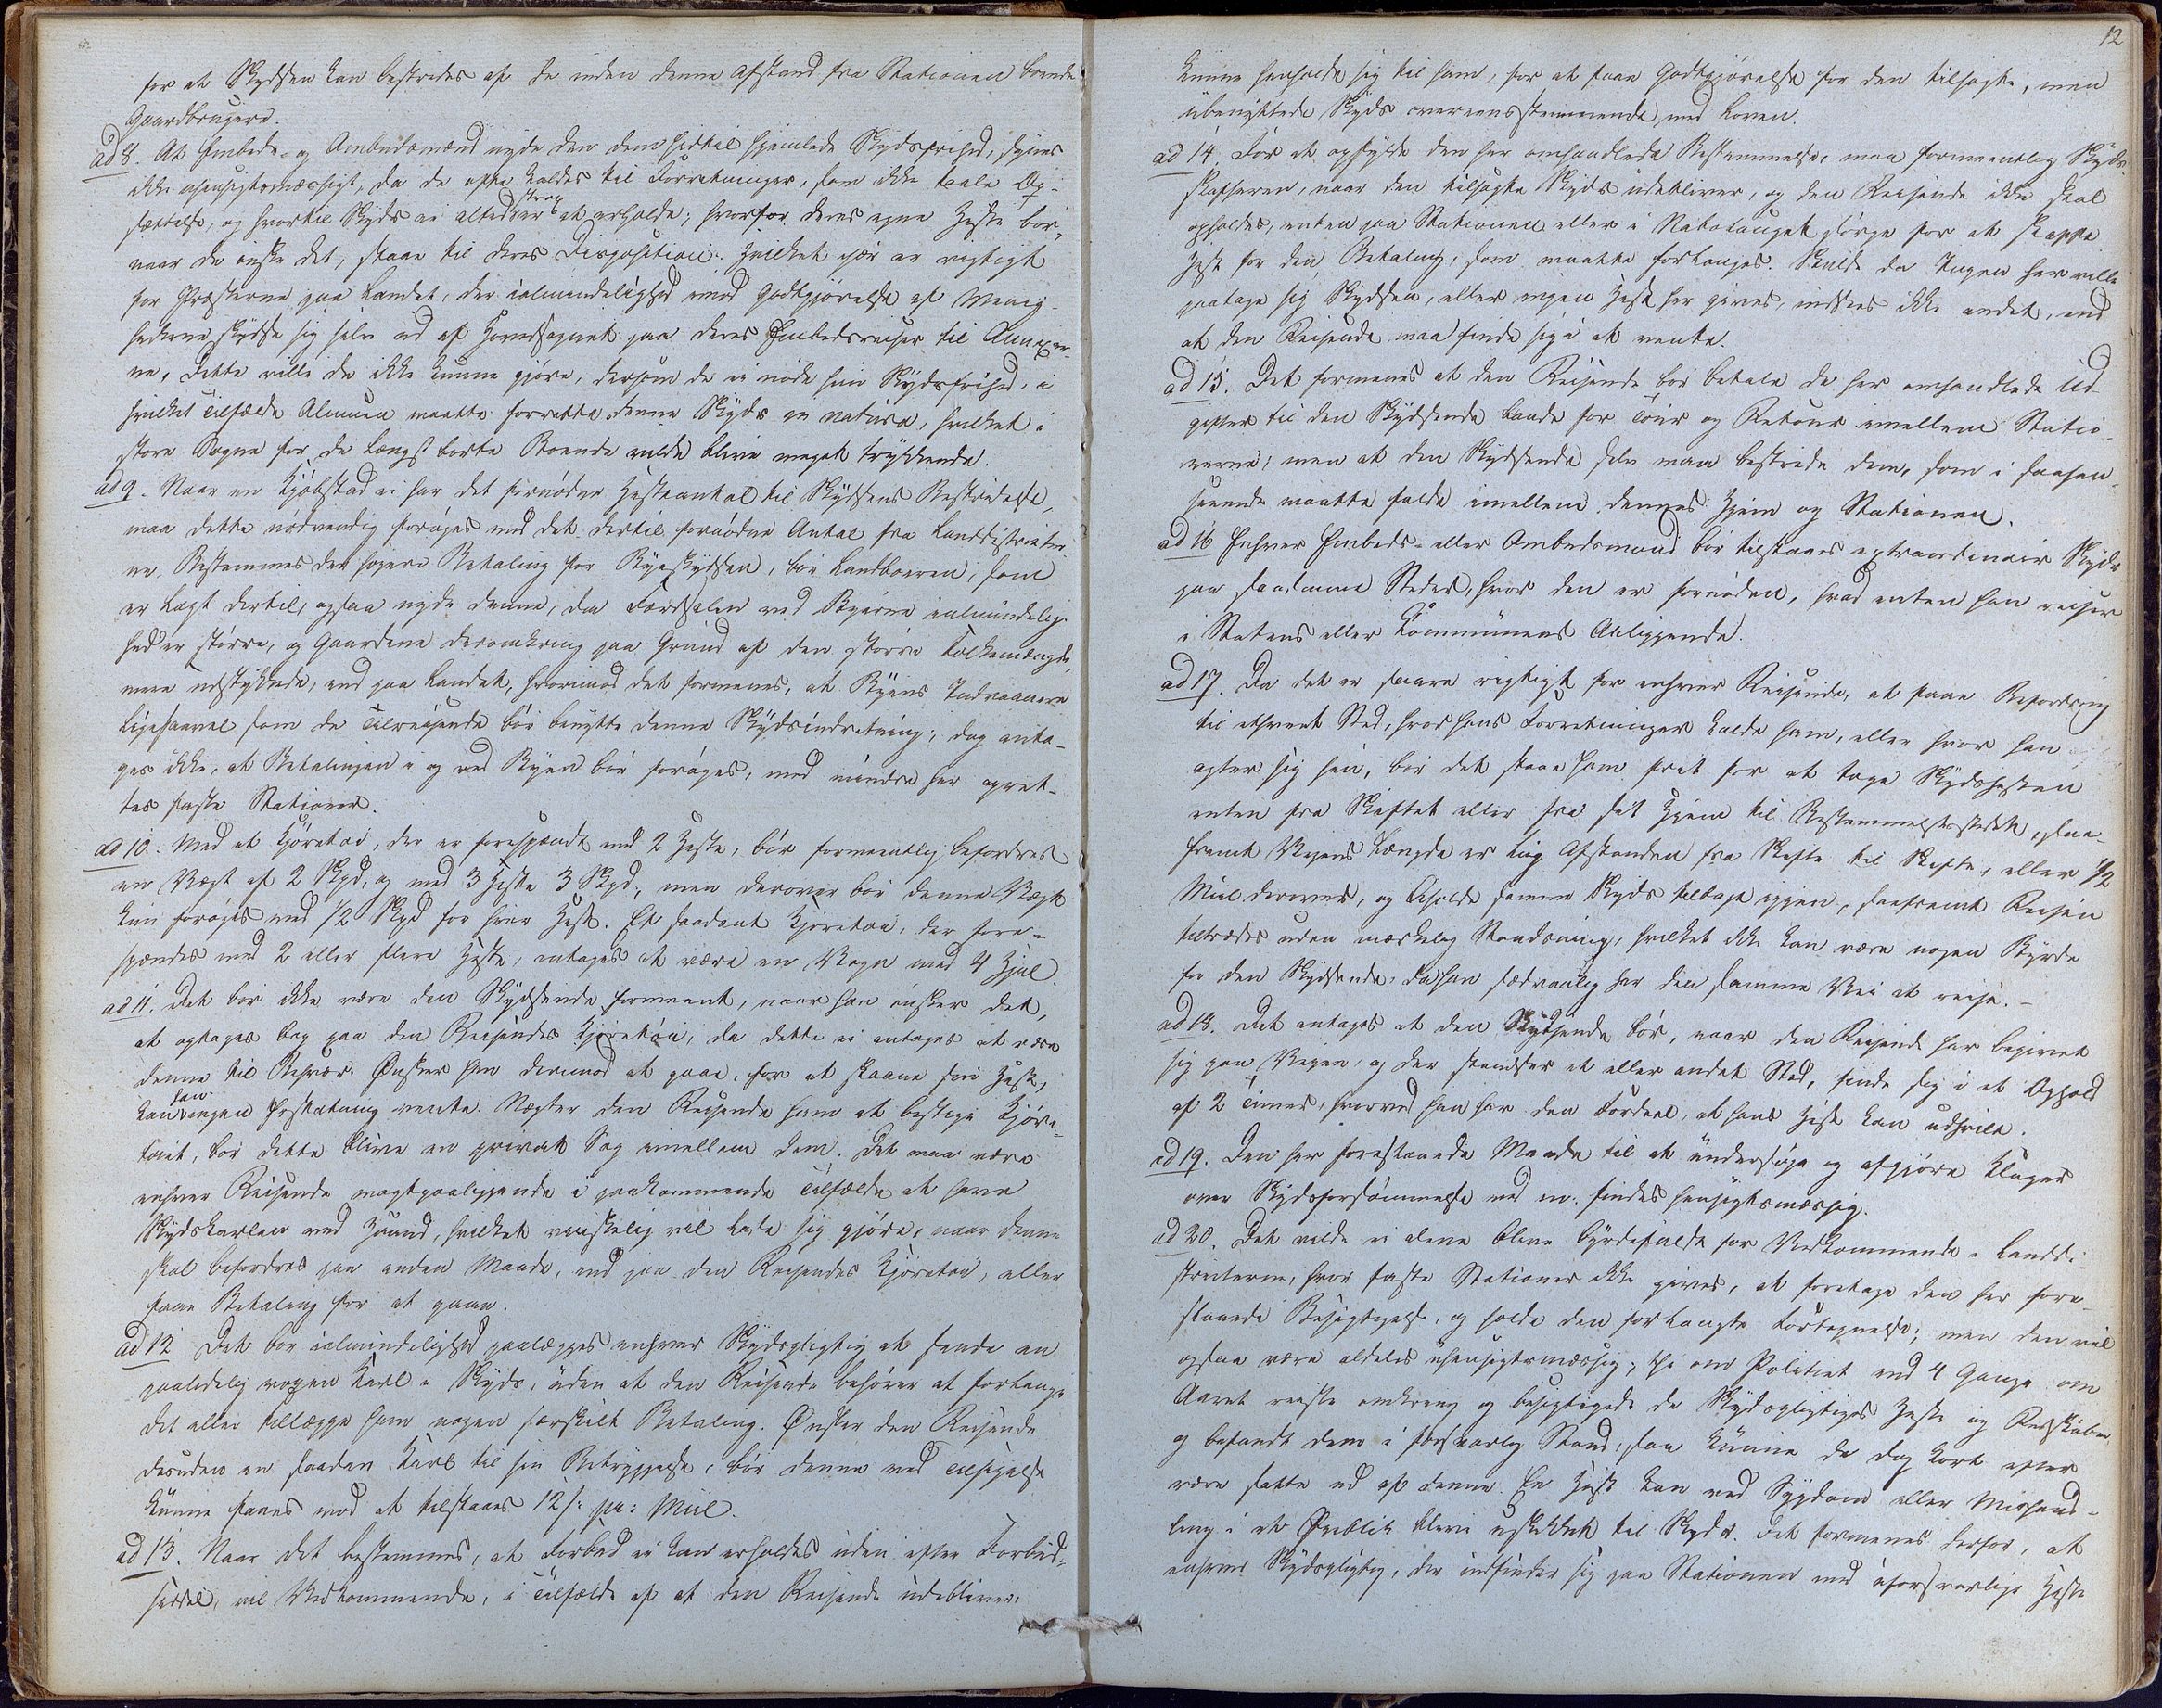 for at Skydsen kan bestrides af de inden denne Afstand fra Stationen boende
Gaardbrugere.
ad 8. At Embeds- og Ombudsmænd nyde den dem hidtil hjemlede Skydsfrihed, synes
ikke uhensigtsmæssigt, da de ofte kaldes til Forretninger, som ikke taale Op-
sættelse, og hvortil Skyds ei altid er strax at erholde; hvorfor deres egne Heste bør,
naar de ønske det, staae til deres Disposition: Hvilket især er vigtigt
for Præsterne paa Landet, der i almindelighed imod Godtgjørelse af Menig-
hederne skydse sig selv ud af Hovedsognet paa deres Embedsreiser til Annexer-
ne, Dette ville de ikke kunne gjøre, dersom de ei nøde hiin Skydsfrihed, i
hvilket Tilfælde Almuen maatte forrette denne Skyds in natura, hvilket i
store Sogne for de længst borte Boende vilde blive meget trykkende.
ad 9. Naar en Kjøbstad ei har det fornødne Hesteantal til Skydsens Bestridelse,
maa dette nødvendig forøges med det dertil fornødne Antal fra Landdistricter-
ne. Bestemmes den høiere Betaling for Byeskydsen, bør Landboeren, som
er lagt dertil, ogsaa nyde denne, da Færdselen ved Byerne i almindelig-
hed er større, og Gaardene deromkring paa Grund af den større Folkemængde,
mere udstykkede, end paa Landet, hvorimod det formenes, at Byens Indvaanere
ligesaavel som de Tilreisende bør benytte denne Skydsindretning; dog anta-
ges ikke, at Betalingen i og ved Byen bør forøges, med mindre her opret-
tes faste Stationer.
ad 10. Med et Kjøretøi, der er forespændt med 2 Heste, bør formeentlig befordres
en Vægt af 2 Skpd, og med 3 Heste 3 Skpd; men derover bør denne Vægt
kun forøges med 1/2 Skpd for hver Hest. Et saadant Kjøretøi, der fore-
spændes med 2 eller flere Heste, antages at være en Vogn med 4 Hjul.
ad 11. Det bør ikke være den Skydsende formeent, naar han ønsker det,
at optages bag paa den Reisendes Kjøretøi, da dette ei antages at være
denne til Besvær. Ønsker han derimod at gaae, for at skaane sin Hest,
kan han ingen Erstatning vente. Nægter den Reisende ham at bestige Kjøre-
tøiet, bør dette blive en privat Sag imellem dem. Det maa være
enhver Reisende magtpaaliggende i paakommende Tilfælde at have
Skydskarlen ved Haand, hvilket vanskelig vil lade sig gjøre, naar denne
skal befordres paa anden Maade, end paa den Reisendes Kjøretøi, eller
faae Betaling for at gaae.
ad 12 Det bør i almindelighed paalægges enhver Skydspligtig at sende en
paalidelig voxen Karl i Skyds, uden at den Reisende behøver at forlange
det eller tillægge ham nogen særskilt Betaling. Ønsker den Reisende
desuden en saadan Karl til sin Betryggelse, bør denne ved Tilsigelse
kunne faaes mod at tilstaaes 12 s: pr: Miil.
ad 13. Naar det bestemmes, at Forbud ei kan erholdes uden efter Forbud-
seddel, vil Vedkommende, i Tilfælde af at den Reisende udebliver,
12
kunne henholde sig til ham, for at faae Godtgjørelse for den tilsagte, men
ubenyttede Skyds overeensstemmende med Loven.
ad 14. For at opfylde den her omhandlede Bestemmelse, maa formeentlig Skyds-
skafferen, naar den tilsagte Skyds udebliver, og den Reisende ikke skal
opholdes, enten paa Stationen eller i Nabolauget sørge for at skaffe
Hest for den Betaling, som maatte forlanges. Skulde da Ingen her ville
paatage sig Skydsen, eller ingen Hest her gives, indsees ikke andet, end
at den Reisende maa finde sig i at vente.
ad 15. Det formenes at den Reisende bør betale de her omhandlede Ud-
gifter til den Skydsende baade for Tour og Retour imellem Statio-
nerne; men at den Skydsende selv maa bestride dem, som i saahen-
seende maatte falde imellem dennes Hjem og Stationen.
ad 16 Enhver Embeds- eller Ombudsmand bør tilstaaes extraordinair Skyds
paa saadanne Steder, hvor den er fornøden, hvad enten han reiser
i Statens eller Kommunens Anliggende.
ad 17. Da det er saare vigtigt for enhver Reisende, at faae Befordring
til ethvert Sted, hvor hans Forretninger kalde ham, eller hvor han
agter sig hen, bør det staae ham frit for at tage Skydshesten
enten fra Skiftet eller fra sit Hjem til Bestemmelsesstedet, saa-
fremt Veiens Længde er liig Afstanden fra Skifte til Skifte, eller 1/2
Miil derover, og beholde samme Skyds tilbage igjen, saafremt Reisen
tiltrædes uden mærkelig Standsning, hvilket ikke kan være nogen Byrde
for den Skydsende, da han sædvanlig har den samme Vei at reise.-
ad 18. Det antages at den Skydsende bør, naar den Reisende har begivet
sig paa Veien, og der standser et eller andet Sted, finde sig i et Ophold
af 2 Timer, hvorved han har den Fordeel, at hans Hest kan udhvile.
ad 19. Den her forestaaede Maade til at undersøge og afgjøre Klager
over Skydsforsømmelse med m. findes hensigtsmæssig.
ad 20. Det vilde ei alene blive byrdefuldt for Vedkommende i Landdi-
stricterne, hvor faste Stationer ikke gives, at foretage den her fore-
slaaede Besigtigelse, og holde den forlangte Fortegnelse; men den vil
ogsaa være aldeles uhensigtsmæssig; thi om Politiet end 4 Gange om
Aaret reiste omkring og besigtigede de Skydspligtiges Heste og Redskaber
og befandt dem i forsvarlig Stand, saa kunne de dog kort efter
være satte ud af denne. En Hest kan ved Sygdom eller Mishand-
ling i et Øieblik blive uskikket til Skyds. Det formenes derfor, at
enhver Skydspligtig, der indfinder sig paa Stationen med uforsvarlige Heste